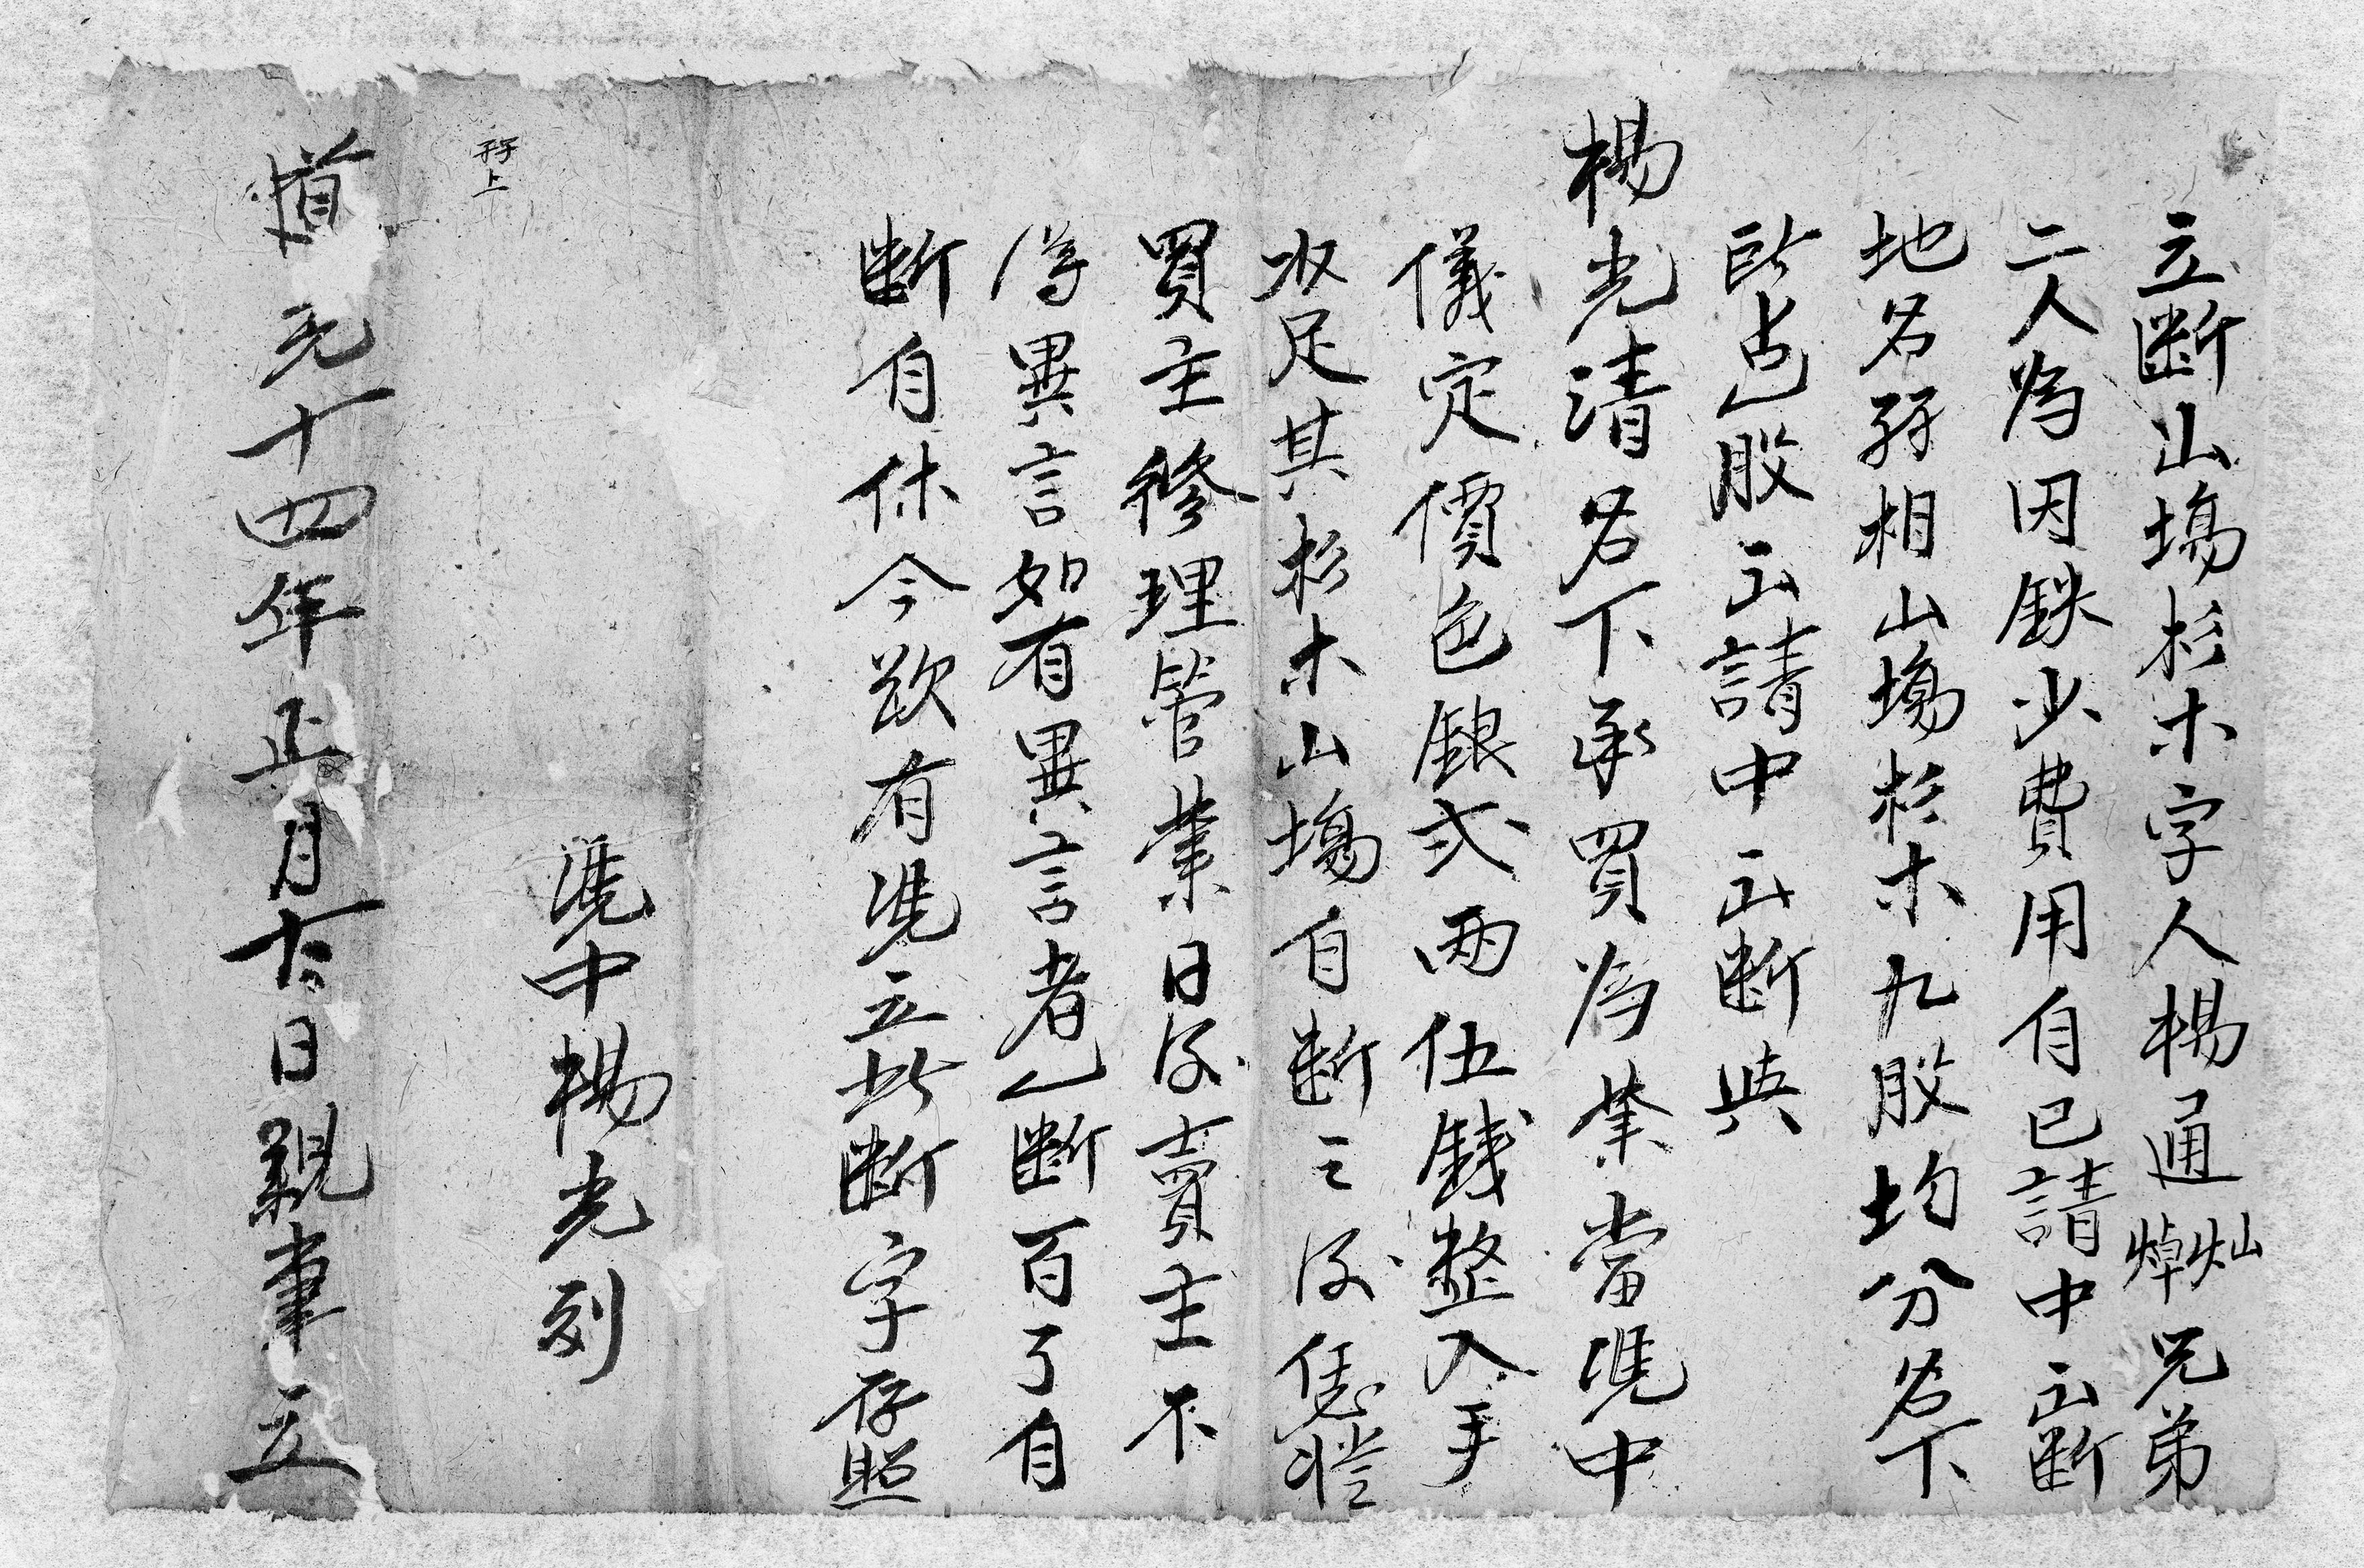 立断山塲杉木字人楊通灿焯兄弟
二人為因缺少費用自己請中正断
地名孖相山塲杉木九股均分名下
所占乙股正請中正断與
楊光清名下承買為業當凴中
儀定價色銀弍両伍錢整入手
收足其杉木山塲自断之後凴
買主修理管業日後賣主不
得異言如有異言者乙断百了自
断自休今欲有凴立此断字存照
凴中楊光列
孖上
道光十四年正月日親筆立